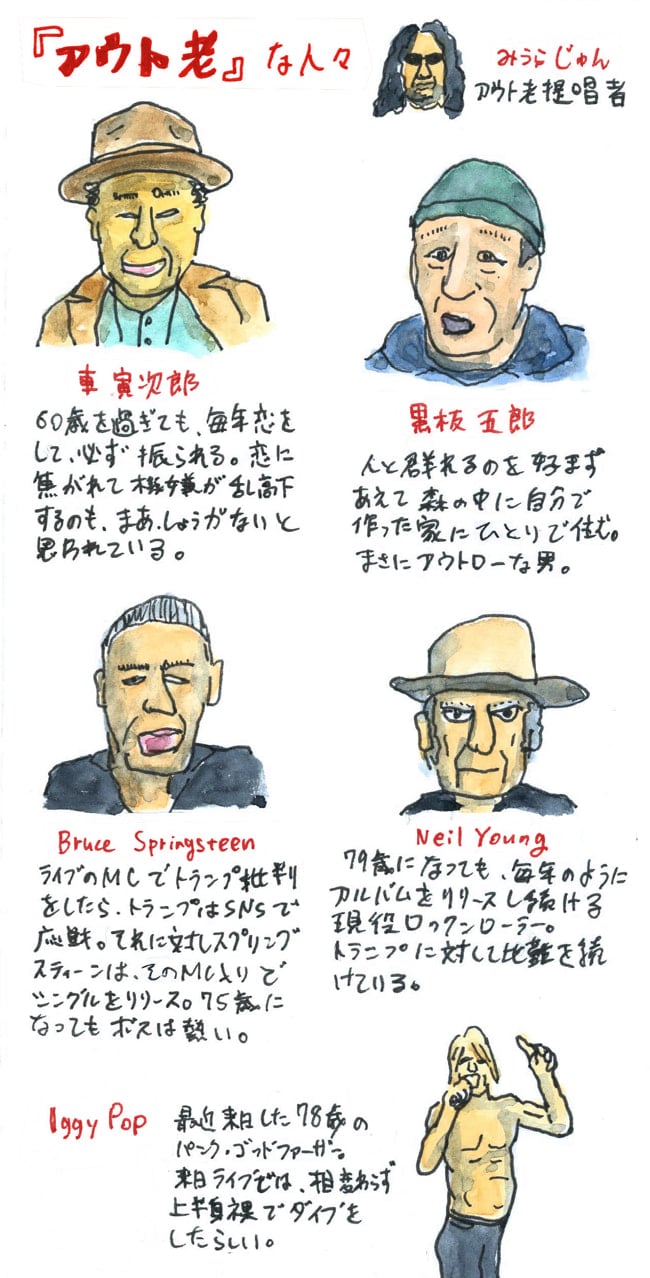 『アウト老』な人々
みうらじゅん
アウト老提唱者
車 寅次郎
60歳を過ぎても、毎年恋を
して、必ず振られる。恋に
焦がれて機嫌が乱高下
するのも、まあ、しょうがないと
思われている。
黒板 五郎
人と群れるのを好まず
あえて森の中に自分で
作った家にひとりで住む。
まさにアウトローな男。
Bruce Springsteen
ライブのMCでトランプ批判
をしたら、トランプはSNSで
応戦。それに対しスプリング
スティーンは、そのMC入りで
シングルをリリース。75歳に
なってもボスは熱い。
Neil Young
79歳になっても、毎年のように
アルバムをリリースし続ける
現役ロックンローラー。
トランプに対して比難を続
けている。
Iggy Pop
最近来日した78歳の
パンク・ゴッドファーザー。
来日ライブでは、相変わらず
上半身裸でダイブを
したらしい。